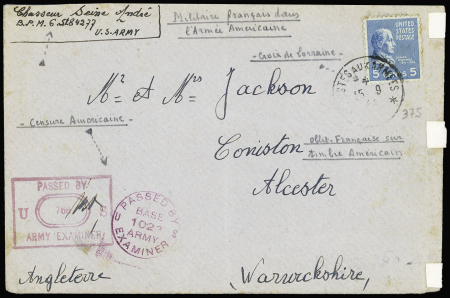 Chasseur Seine André
B.P.M. 6. St 84277
U.S-ARMY
Militaire français dans
l'Armée Américaine
- Croix de Lorraine -
5 UNITED STATES POSTAGE 5
POSTES AUX ARMEES
15 9
375
Mr et Mrs Jackson
- Censure Américaine -
Coniston
oblit. Française sur
timbre Américain
Alcester
PASSED BY
U S
ARMY EXAMINER
PASSED BY
U S
BASE
1022
ARMY
EXAMINER
Angleterre
(Warwickshire)